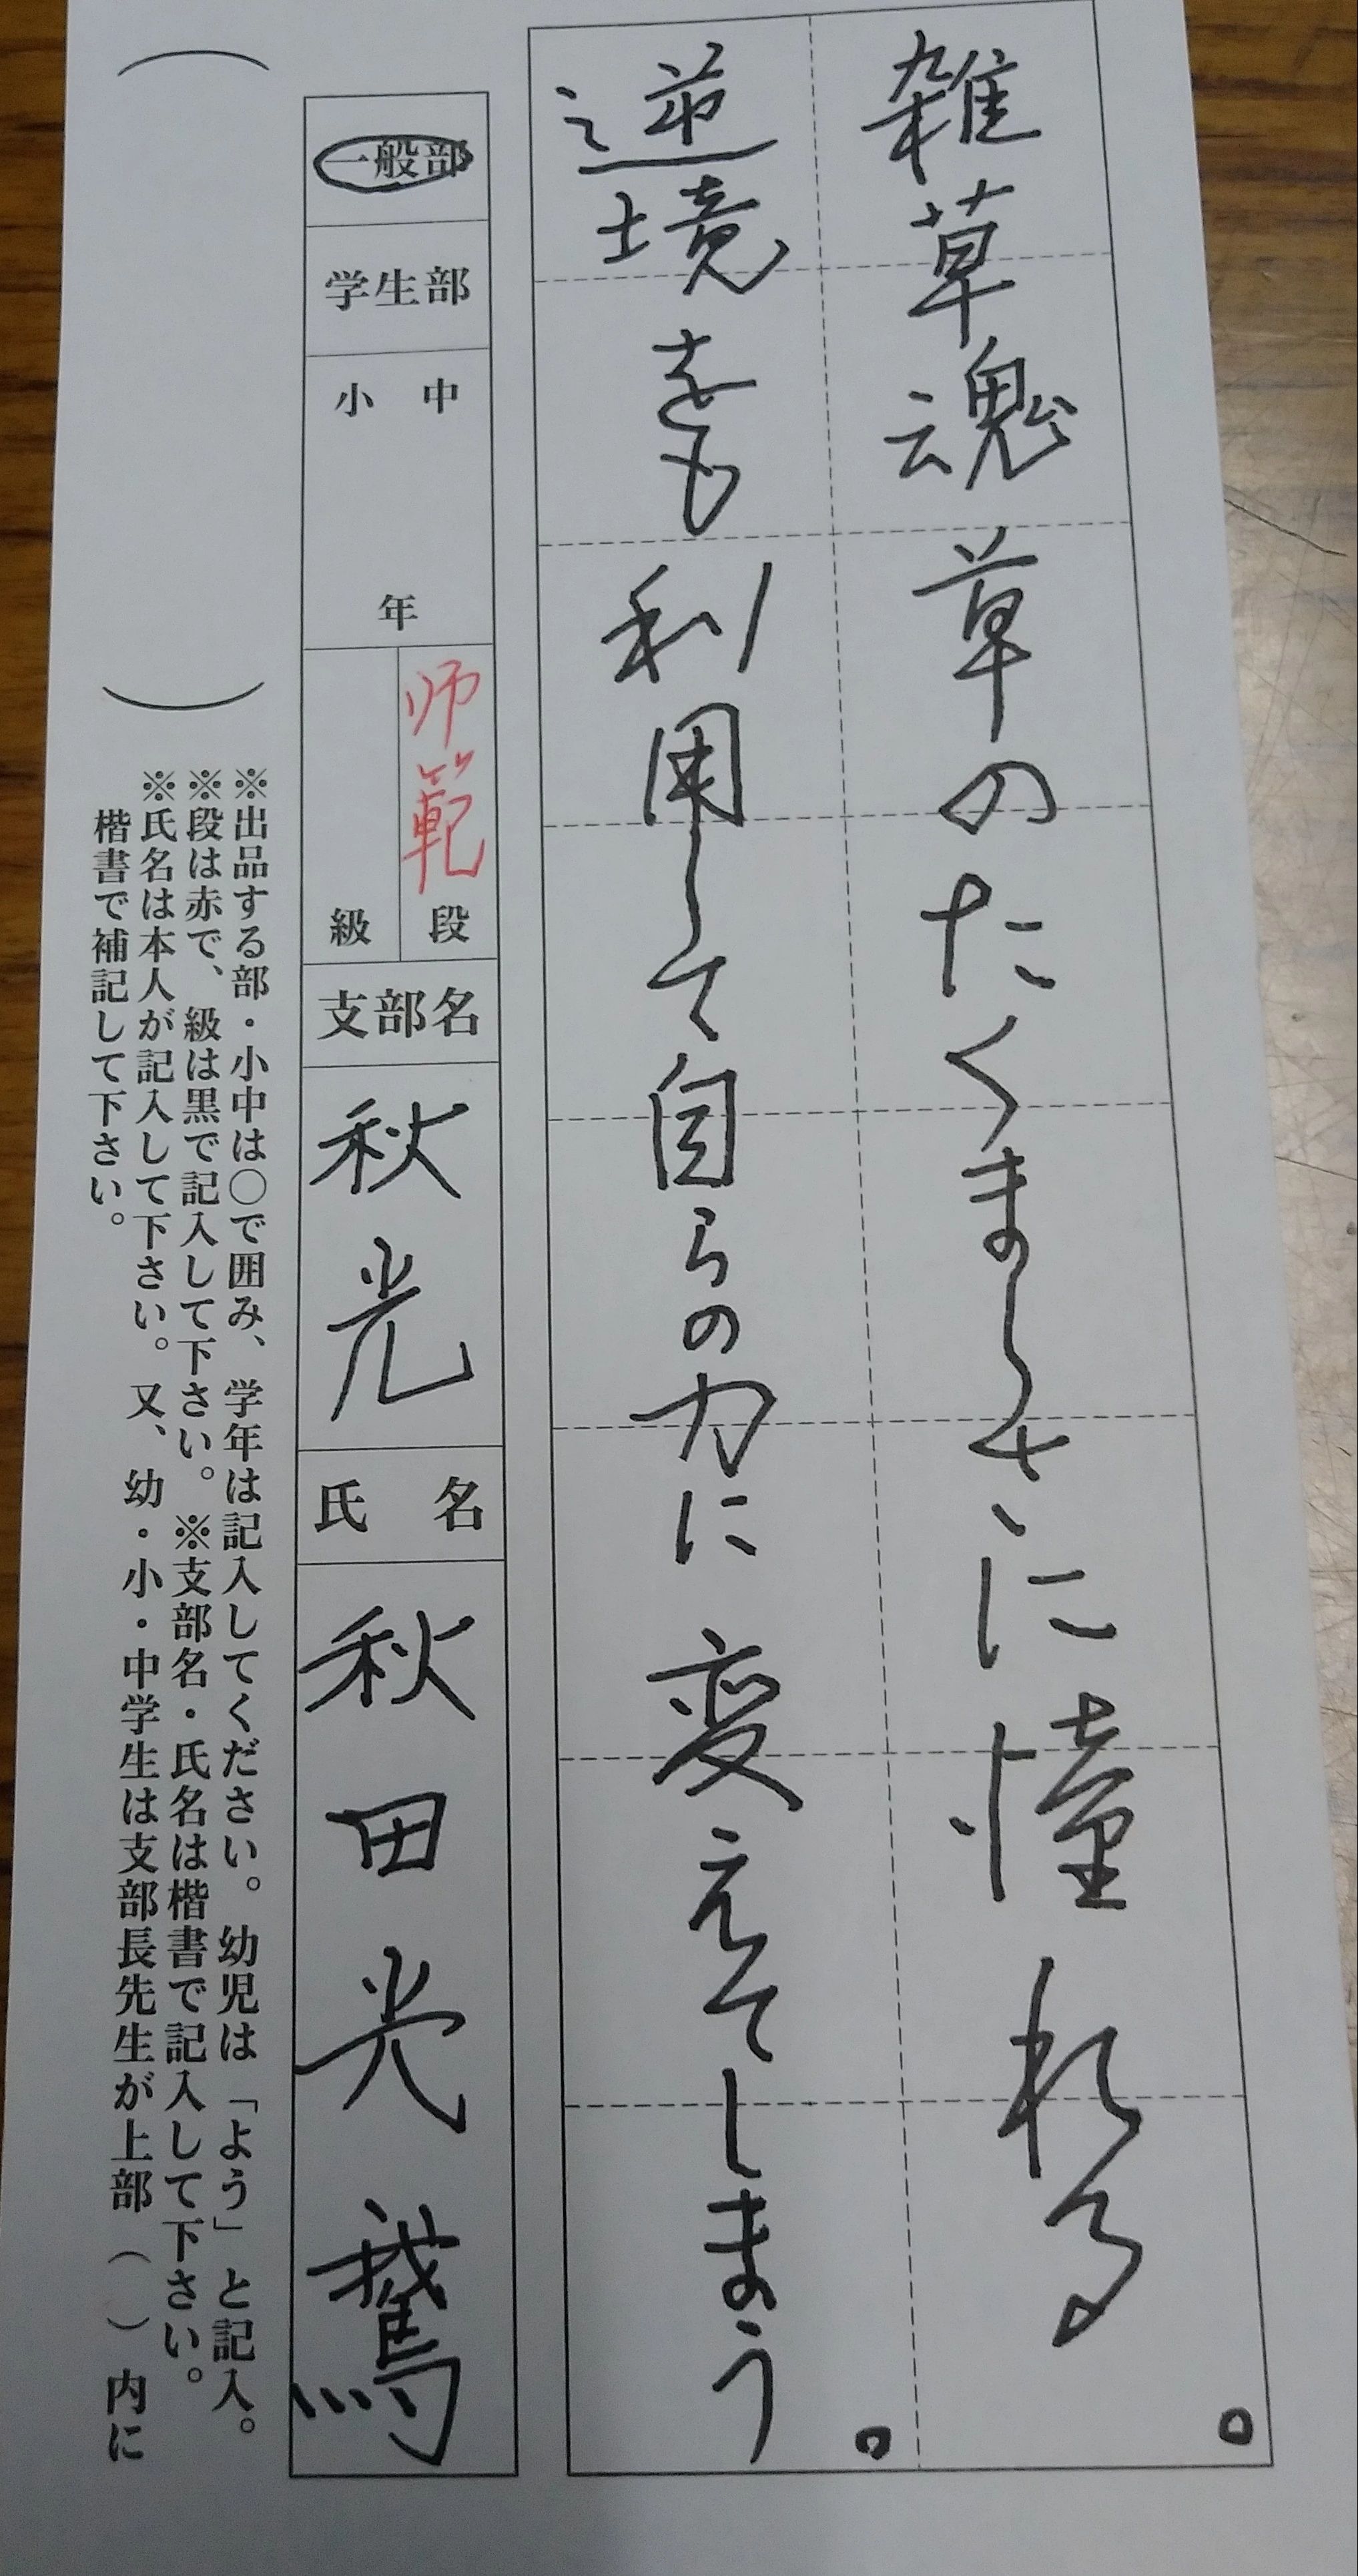 雑草魂草のたくましさに憧れる。
逆境をも利用して自らの力に変えてしまう。
一般部
学生部
小 中
年
師範
級 段
支部名
秋光
氏 名
秋田光鵞
( )
※出品する部・小中は○で囲み、学年は記入してください。幼児は「よう」と記入。
※段は赤で、級は黒で記入して下さい。※支部名・氏名は楷書で記入して下さい。
※氏名は本人が記入して下さい。又、幼・小・中学生は支部長先生が上部( )内に
楷書で補記して下さい。